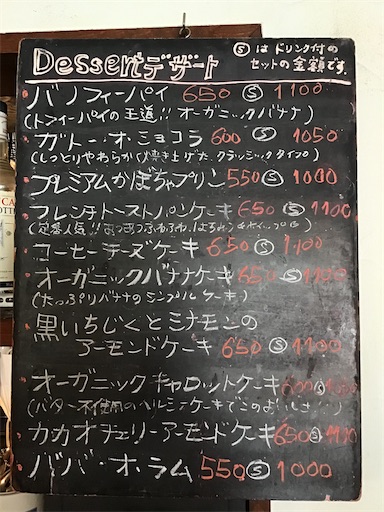 Dessertデザート
Ⓢはドリンク付の
セットの金額です。
バノフィーパイ 650 Ⓢ 1100
(トフィーパイの王道!! オーガニックバナナ)
ガトー・オ・ショコラ 600 Ⓢ 1050
(しっとりやわらかび焼き上げた クラッシックタイプ)
プレミアムかぼちゃプリン 550 Ⓢ 1000
フレンチトーストパンケーキ 650 Ⓢ 1100
コーヒーチーズケーキ 650 Ⓢ 1100
オーガニックバナナケーキ 650 Ⓢ 1100
(たっぷりバナナのシンプルケーキ)
黒いちじくとシナモンの
アーモンドケーキ 650 Ⓢ 1100
オーガニックキャロットケーキ 600 Ⓢ
(バター不使用のヘルシーケーキでこのおいしさ
カカオチェリーアーモンドケーキ 650 Ⓢ 1100
ババ・オ・ラム 550 Ⓢ 1000